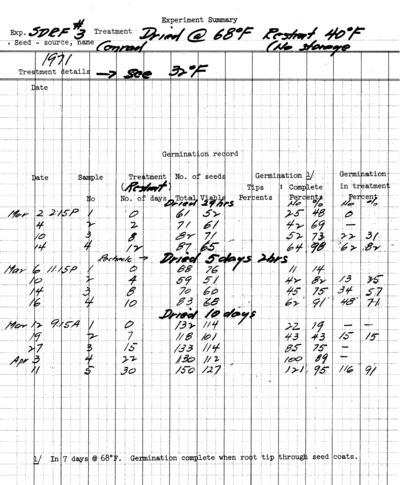 Experiment Summary
Exp. SDRF #3 Treatment Dried @ 68°F Restart 40°F
Seed - source, name Conrad (No storage
1971
Treatment details → see 32°F
Date
Germination record
Date Sample Treatment No. of seeds Germination 1/ Germination
(Restart) Tips : Complete in treatment
No No. of days Total Viable Percents Percents Percent
Dried 29 hrs No % No %
Mar 2 2:15P 1 0 61 52 25 48 0
4 2 2 71 61 42 69 —
10 3 8 82 71 52 73 22 31
14 4 12 87 65 64 98 62 82
→ Dried 5 days 2 hrs
Mar 6 11:15P 1 0 88 76 11 14
10 2 4 59 51 42 82 13 25
14 3 8 70 60 45 75 34 57
16 4 10 83 68 62 91 48 71
Dried 10 days
Mar 12 9:15A 1 0 132 114 22 19 — —
19 2 7 118 101 43 43 15 15
27 3 15 133 114 85 75 —
Apr 3 4 22 130 112 100 89 —
11 5 30 150 127 121 95 116 91
1/ In 7 days @ 68°F. Germination complete when root tip through seed coats.